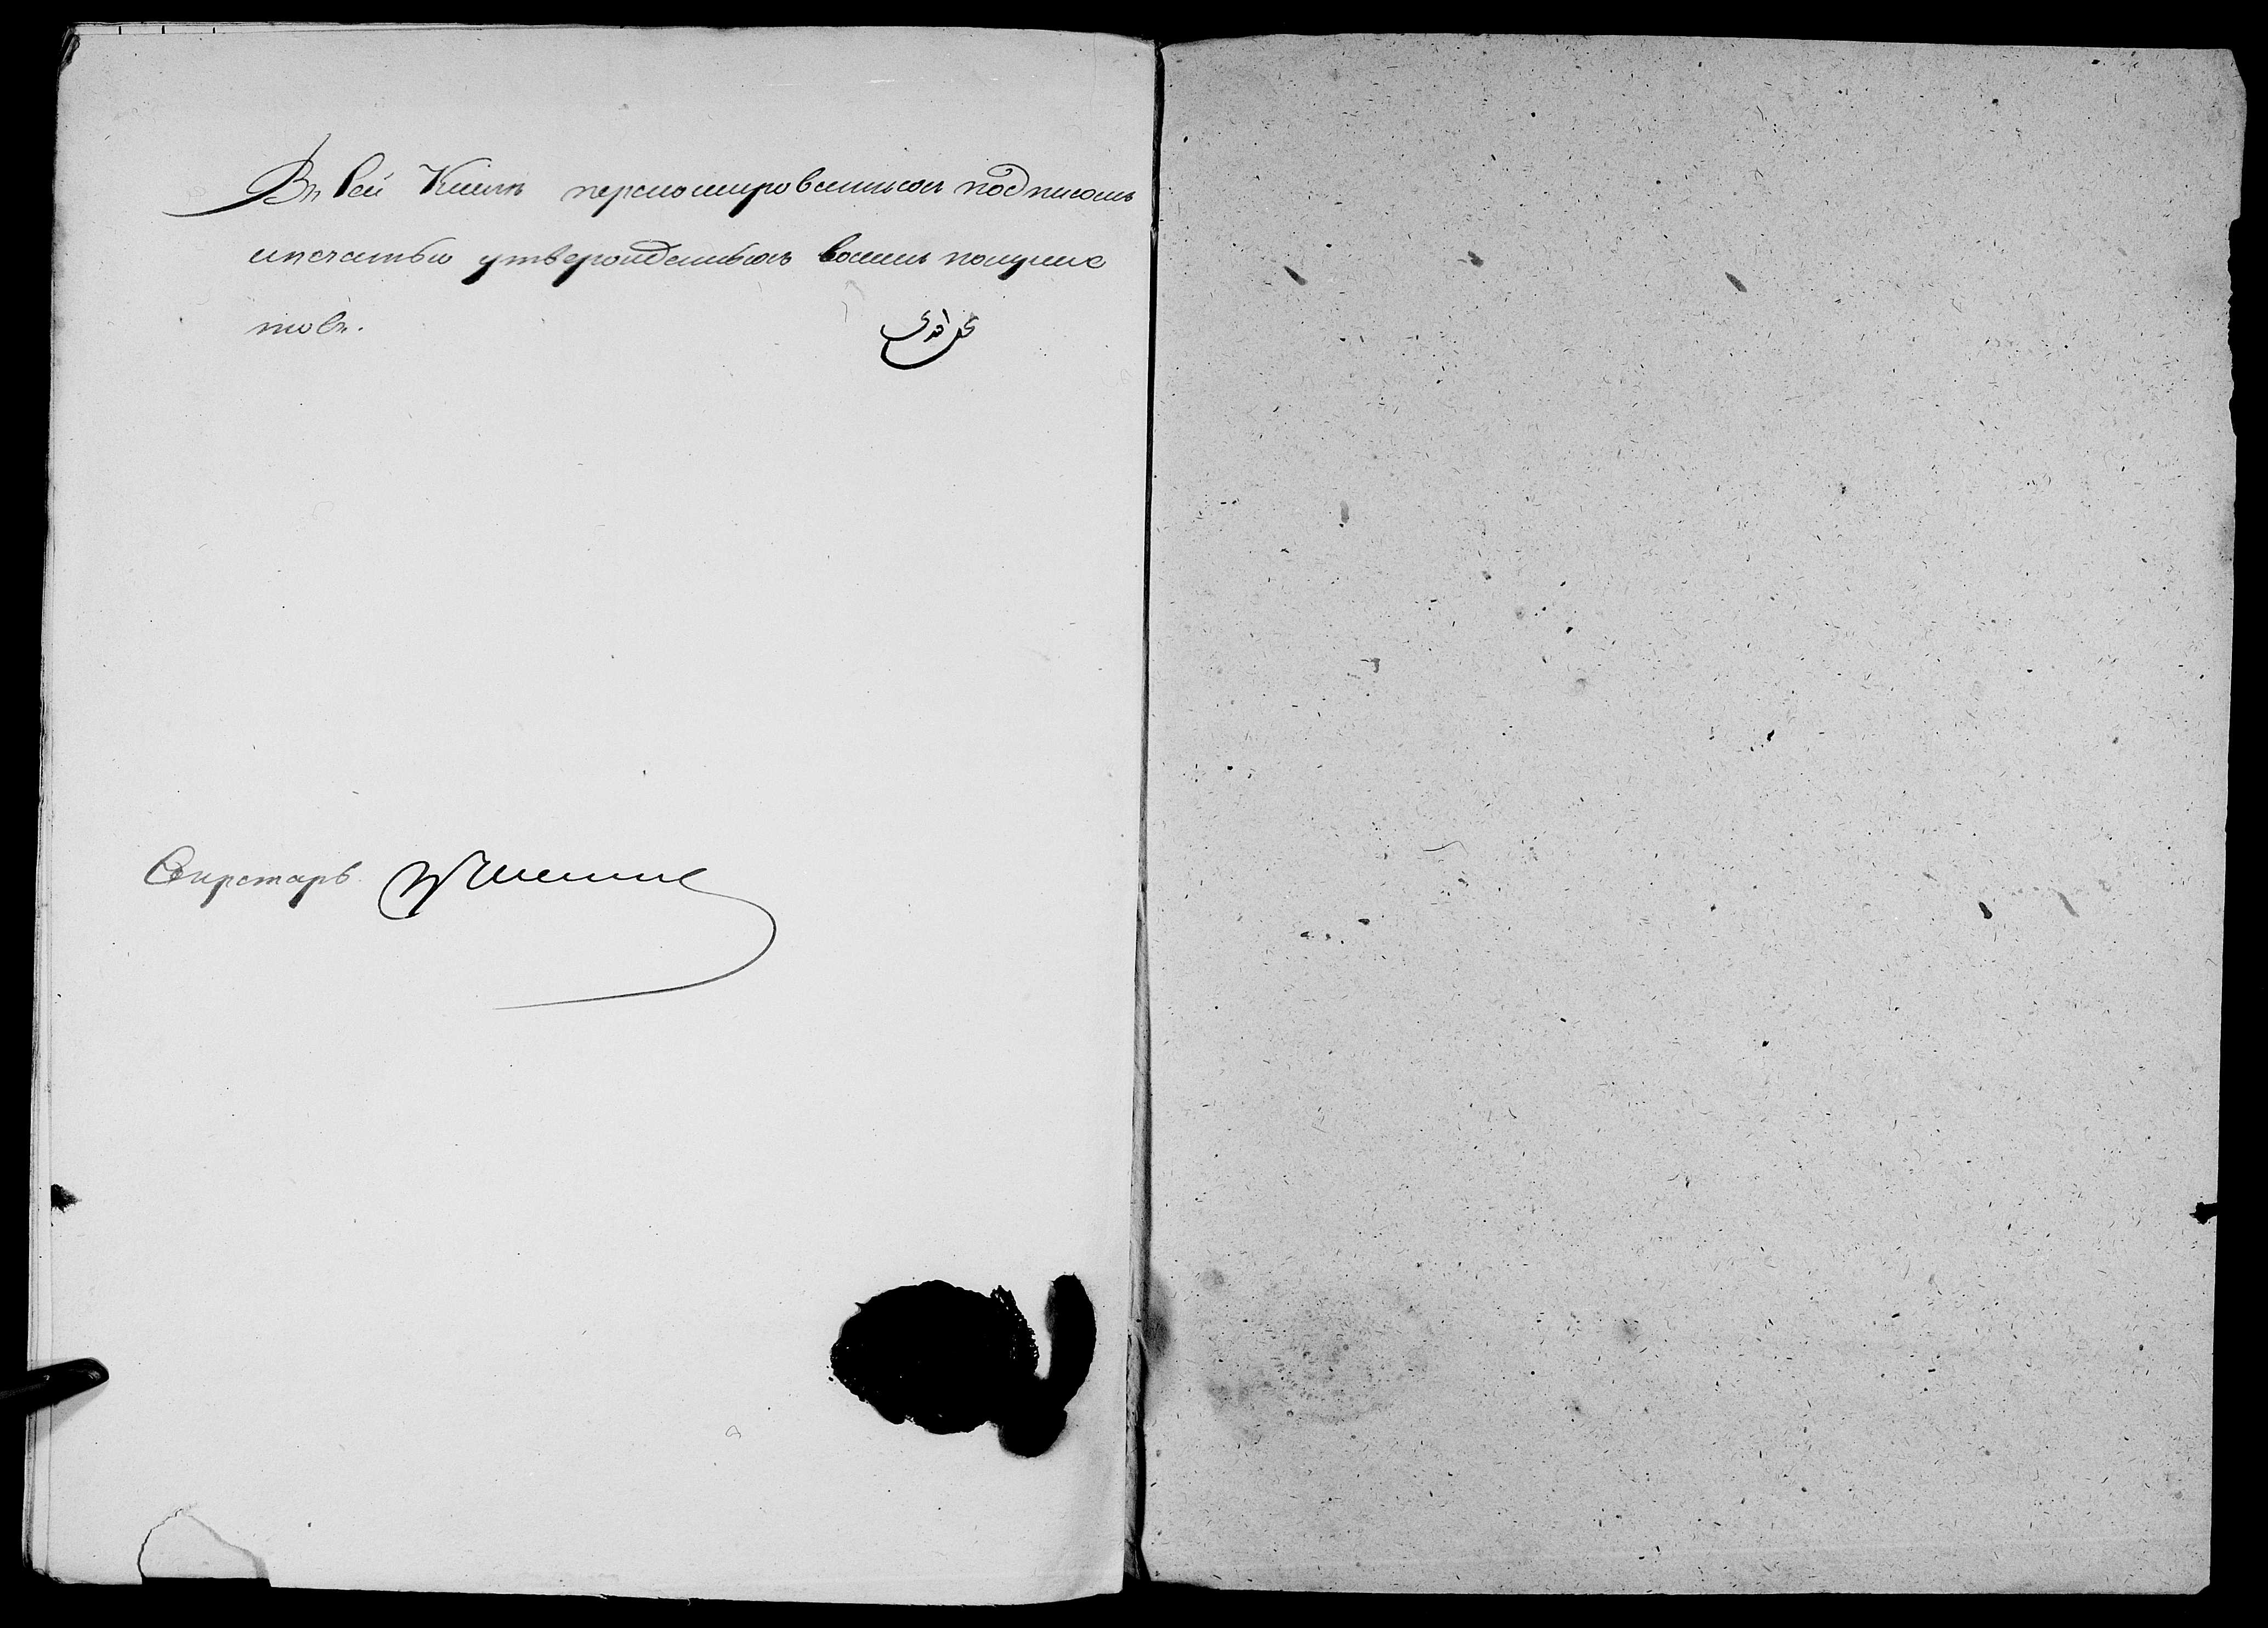 Въ сей Книгѣ перенумерованныхъ подписомъ
ипечатью утвержденныхъ восемь полулис
товъ.
Секретарь